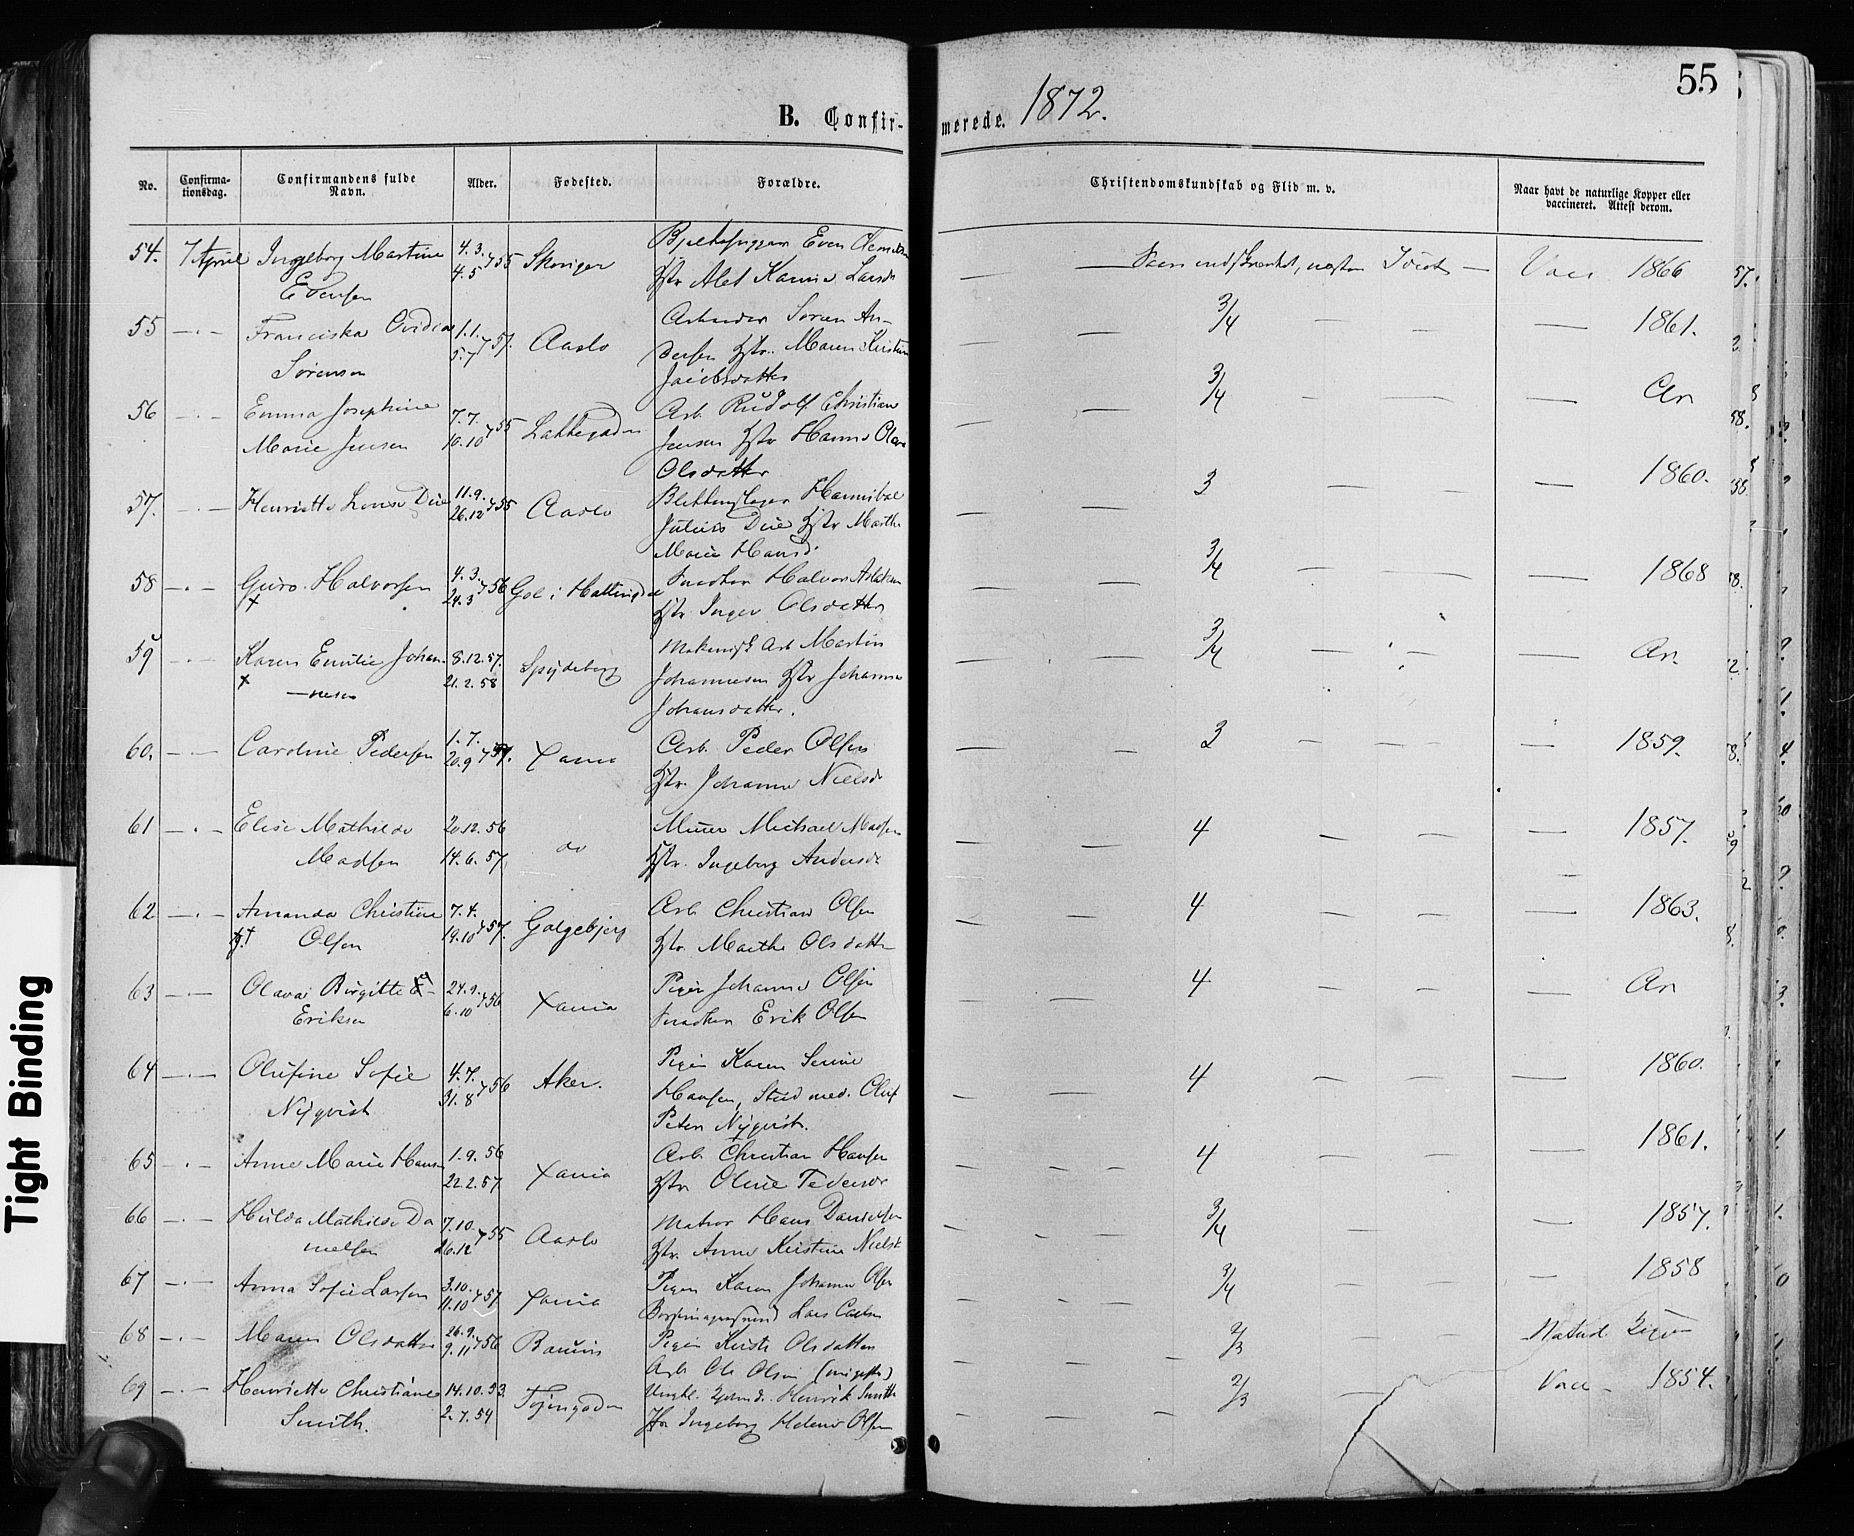 55
B. Confir-
merede. 1872.
No.
Confirma-
tionsdag.
Confirmandens fulde
Navn.
Alder.
Fødested.
Forældre.
Christendomskundskab og Flid m. v.
Naar havt de naturlige Kopper eller
vaccineret. Attest derom.
54. 7 April Ingeborg Martine 4. 3. 55 Even
Evensen 4. 5 Htr Alet Larsd
— næsten Idiot — Vacc 1866
55 — . — Franciska Ovidia 1. 1. 57. Aaslo Arbeider Søren An-
Sørensen 5. 7 dersen Hstr. Maren Kirstine
Jacobsdatter
— 3/4 — — — 1861.
56 — . — Emma Josephine 7. 7. 55 Lakkegaden Arb. Rudolf Christian
Marie Jensen 10. 10 Jensen Hstr Hanne
Olsdatter
— 3/4 — — — An
57. — . — Henriette Lovise Due 11. 9. 55 Aaslo Blikkenslager Hannibal
26. 12 Julius Due Hstr Marthe
Marie Hansd.
— 3 — — — 1860.
58 — . — Guro Halvorsen 4. 3. 56 Gol i Hallingdal Snedker Halvor Aslaksen
x 24. 3 Hstr. Inger Olsdatter
— 3/4 — — — 1868
59 — . — Karen Emilie Johan- 8. 12. 57. Spydeberg Mekanisk Arb Martin
x — nesen 21. 2. 58 Johannesen Hstr Johanne
Johansdatter.
— 3/4 — — — An.
60. — . — Caroline Pedersen 1. 7. 57. Xania Arb. Peder Olsen
20. 9 Hstr. Johanne Nielsd
— 3 — — — 1859.
61 — . — Elise Mathilde 20. 12. 56 do Murer Michael Madsen
Madsen 14. 6. 57. Hstr. Ingeborg Andersd
— 4 — — — 1857.
62 — . — Amanda Christine 7. 4. 57. Galgebjerg Arb. Christian Olsen
Olsen 19. 10 Hstr. Marthe Olsdatter
— 4 — — — 1863.
63 — . — Olava Birgitte E- 24. 9. 56 Xania Pigen Johanne Olsen
Eriksen 6. 10 Snedker Erik Olsen
— 4 — — — An
64 — . — Olufine Sofie 4. 7. 56 Aker. Pigen Karen Serine
Nyqvist 31. 8 Hansen, Stud med. Oluf
Peter Nyqvist.
— 4 — — — 1860.
65 — . — Anne Marie Hansen 1. 9. 56 Xania Arb. Christian Hansen
22. 2. 57 Hstr Oline Pedersd
— 4 — — — 1861.
66 — . — Hilda Mathilde Da 7. 10. 55 Aaslo Matros Hans Danielsen
nielsen 26. 12 Hstr. Anne Kirstine Nielsd
— 3/4 — — — 1857.
67 — . — Anna Sofie Larsen 3. 10. 57 Xania Pigen Karen Johanne Olsen
11. 10 Lars Carlsen
— 3/4 — — — 1858
68 — . — Maren Olsdatter 26. 9. 56 Bærum Pigen Kirsti Olsdatter
9. 11 Arb Ole Olsen (ungifte)
— 2/3 — —
69 — . — Henriette Christiane 14. 10. 53. Tøiengaden Henrik Smith
Smith. 2. 7. 54 Ingeborg Helene Olsen
— 2/3 — Vacc — 1854.
Tight Binding